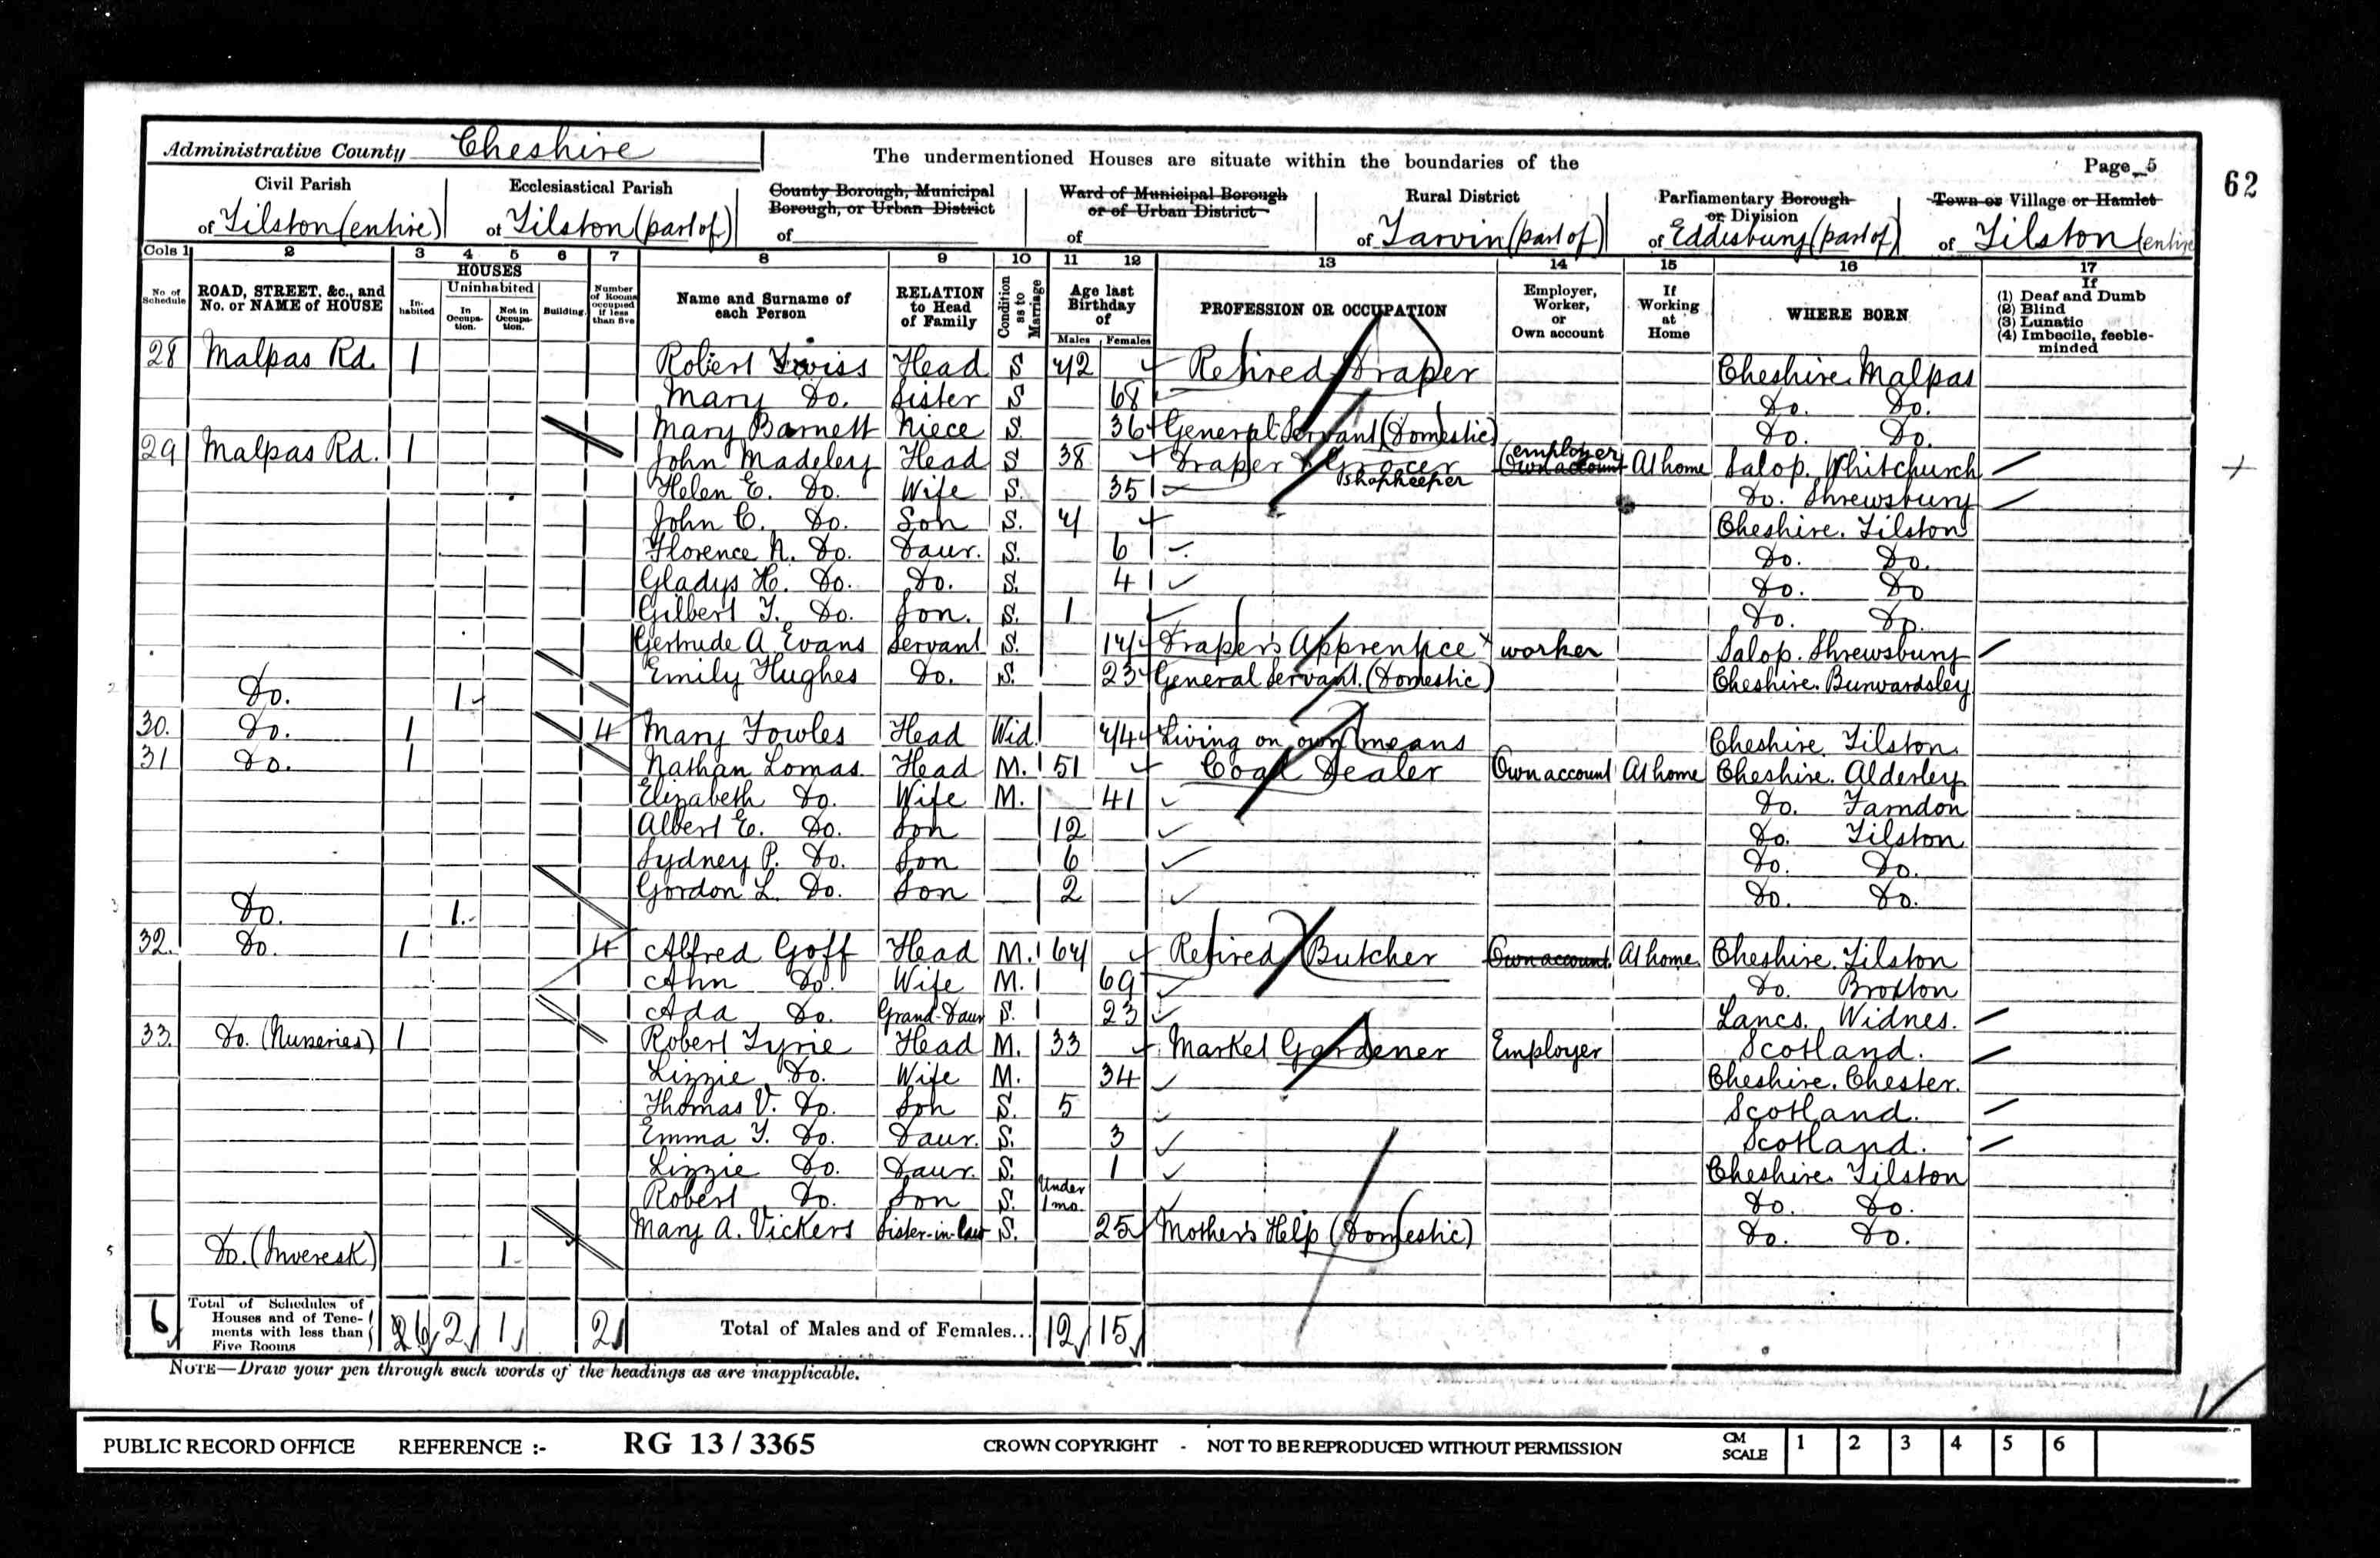 Administrative County Cheshire
The undermentioned Houses are situate within the boundaries of the
Page 5
62
Civil Parish of Tilston (entire)
Ecclesiastical Parish of Tilston (part of)
County Borough, Municipal Borough, or Urban District of
Ward of Municipal Borough or of Urban District of
Rural District of Tarvin (part of)
Parliamentary Borough or Division of Eddisbury (part of)
Town or Village or Hamlet of Tilston (entire
Cols 1 2 3 4 5 6 7 8 9 10 11 12 13 14 15 16 17
No. of Schedule
ROAD, STREET, &c., and No. or NAME of HOUSE
HOUSES
In-habited
Uninhabited
In Occupa-tion.
Not in Occupa-tion.
Building.
Number of Rooms occupied if less than five
Name and Surname of each Person
RELATION to Head of Family
Condition as to Marriage
Age last Birthday of
Males Females
PROFESSION OR OCCUPATION
Employer, Worker, or Own account
If Working at Home
WHERE BORN
If
(1) Deaf and Dumb
(2) Blind
(3) Lunatic
(4) Imbecile, feeble-minded
28 Malpas Rd. 1 Robert Twiss Head S Retired Draper Cheshire Malpas
Mary Do. Sister S 68 Do. Do.
Mary Barnett Niece S 36 General Servant (Domestic) Do. Do.
29 Malpas Rd. 1 John Madeley Head S 38 Draper & Grocer Shopkeeper employer Own account At home Salop. Whitchurch
Helen E. Do. Wife S. 35 Do. Shrewsbury
John C. Do. Son S. Cheshire. Tilston
Florence N. Do. Daur. S. 6 Do. Do.
Gladys H. Do. Do. S. 4 Do. Do
Gilbert T. Do. Son. S. 1 Do. Do.
Gertrude A Evans Servant S. Draper's Apprentice worker Salop. Shrewsbury
Emily Hughes Do. S. 23 General Servant. (Domestic) Cheshire. Burwardsley
2 Do. 1
30. Do. 1 4 Mary Fowles Head Wid. Living on own means Cheshire Tilston.
31 Do. 1 Nathan Lomas. Head M. 51 Coal Dealer Own account At home Cheshire. Alderley
Elizabeth Do. Wife M. 41 Do. Farndon
Albert E. Do. Son 12 Do. Tilston
Sydney P. Do. Son 6 Do. Do.
Gordon L. Do. Son 2 Do. Do.
3 Do. 1.
32. Do. 1 4 Alfred Goff Head M. 64 Retired Butcher Own account. At home. Cheshire. Tilston
Ann Do. Wife M. 69 Do. Broxton
Ada Do. Grand-Daur S. 23 Lancs. Widnes.
33. Do. (Nurseries) 1 Robert Tyrie Head M. 33 Market Gardener Employer Scotland.
Lizzie Do. Wife M. 34 Cheshire. Chester.
Thomas V. Do. Son S. 5 Scotland.
Emma T. Do. Daur. S. 3 Scotland.
Lizzie Do. Daur. S. 1 Cheshire. Tilston
Robert Do. Son S. Under 1 mo. Do. Do.
Mary A. Vickers Sister-in-law S. 25 Mother's Help (Domestic) Do. Do.
5 Do. (Inveresk) 1
6 Total of Schedules of Houses and of Tene-ments with less than Five Rooms 6 2 1 2 Total of Males and of Females... 12 15
NOTE—Draw your pen through such words of the headings as are inapplicable.
PUBLIC RECORD OFFICE REFERENCE :- RG 13 / 3365 CROWN COPYRIGHT - NOT TO BE REPRODUCED WITHOUT PERMISSION CM SCALE 1 2 3 4 5 6